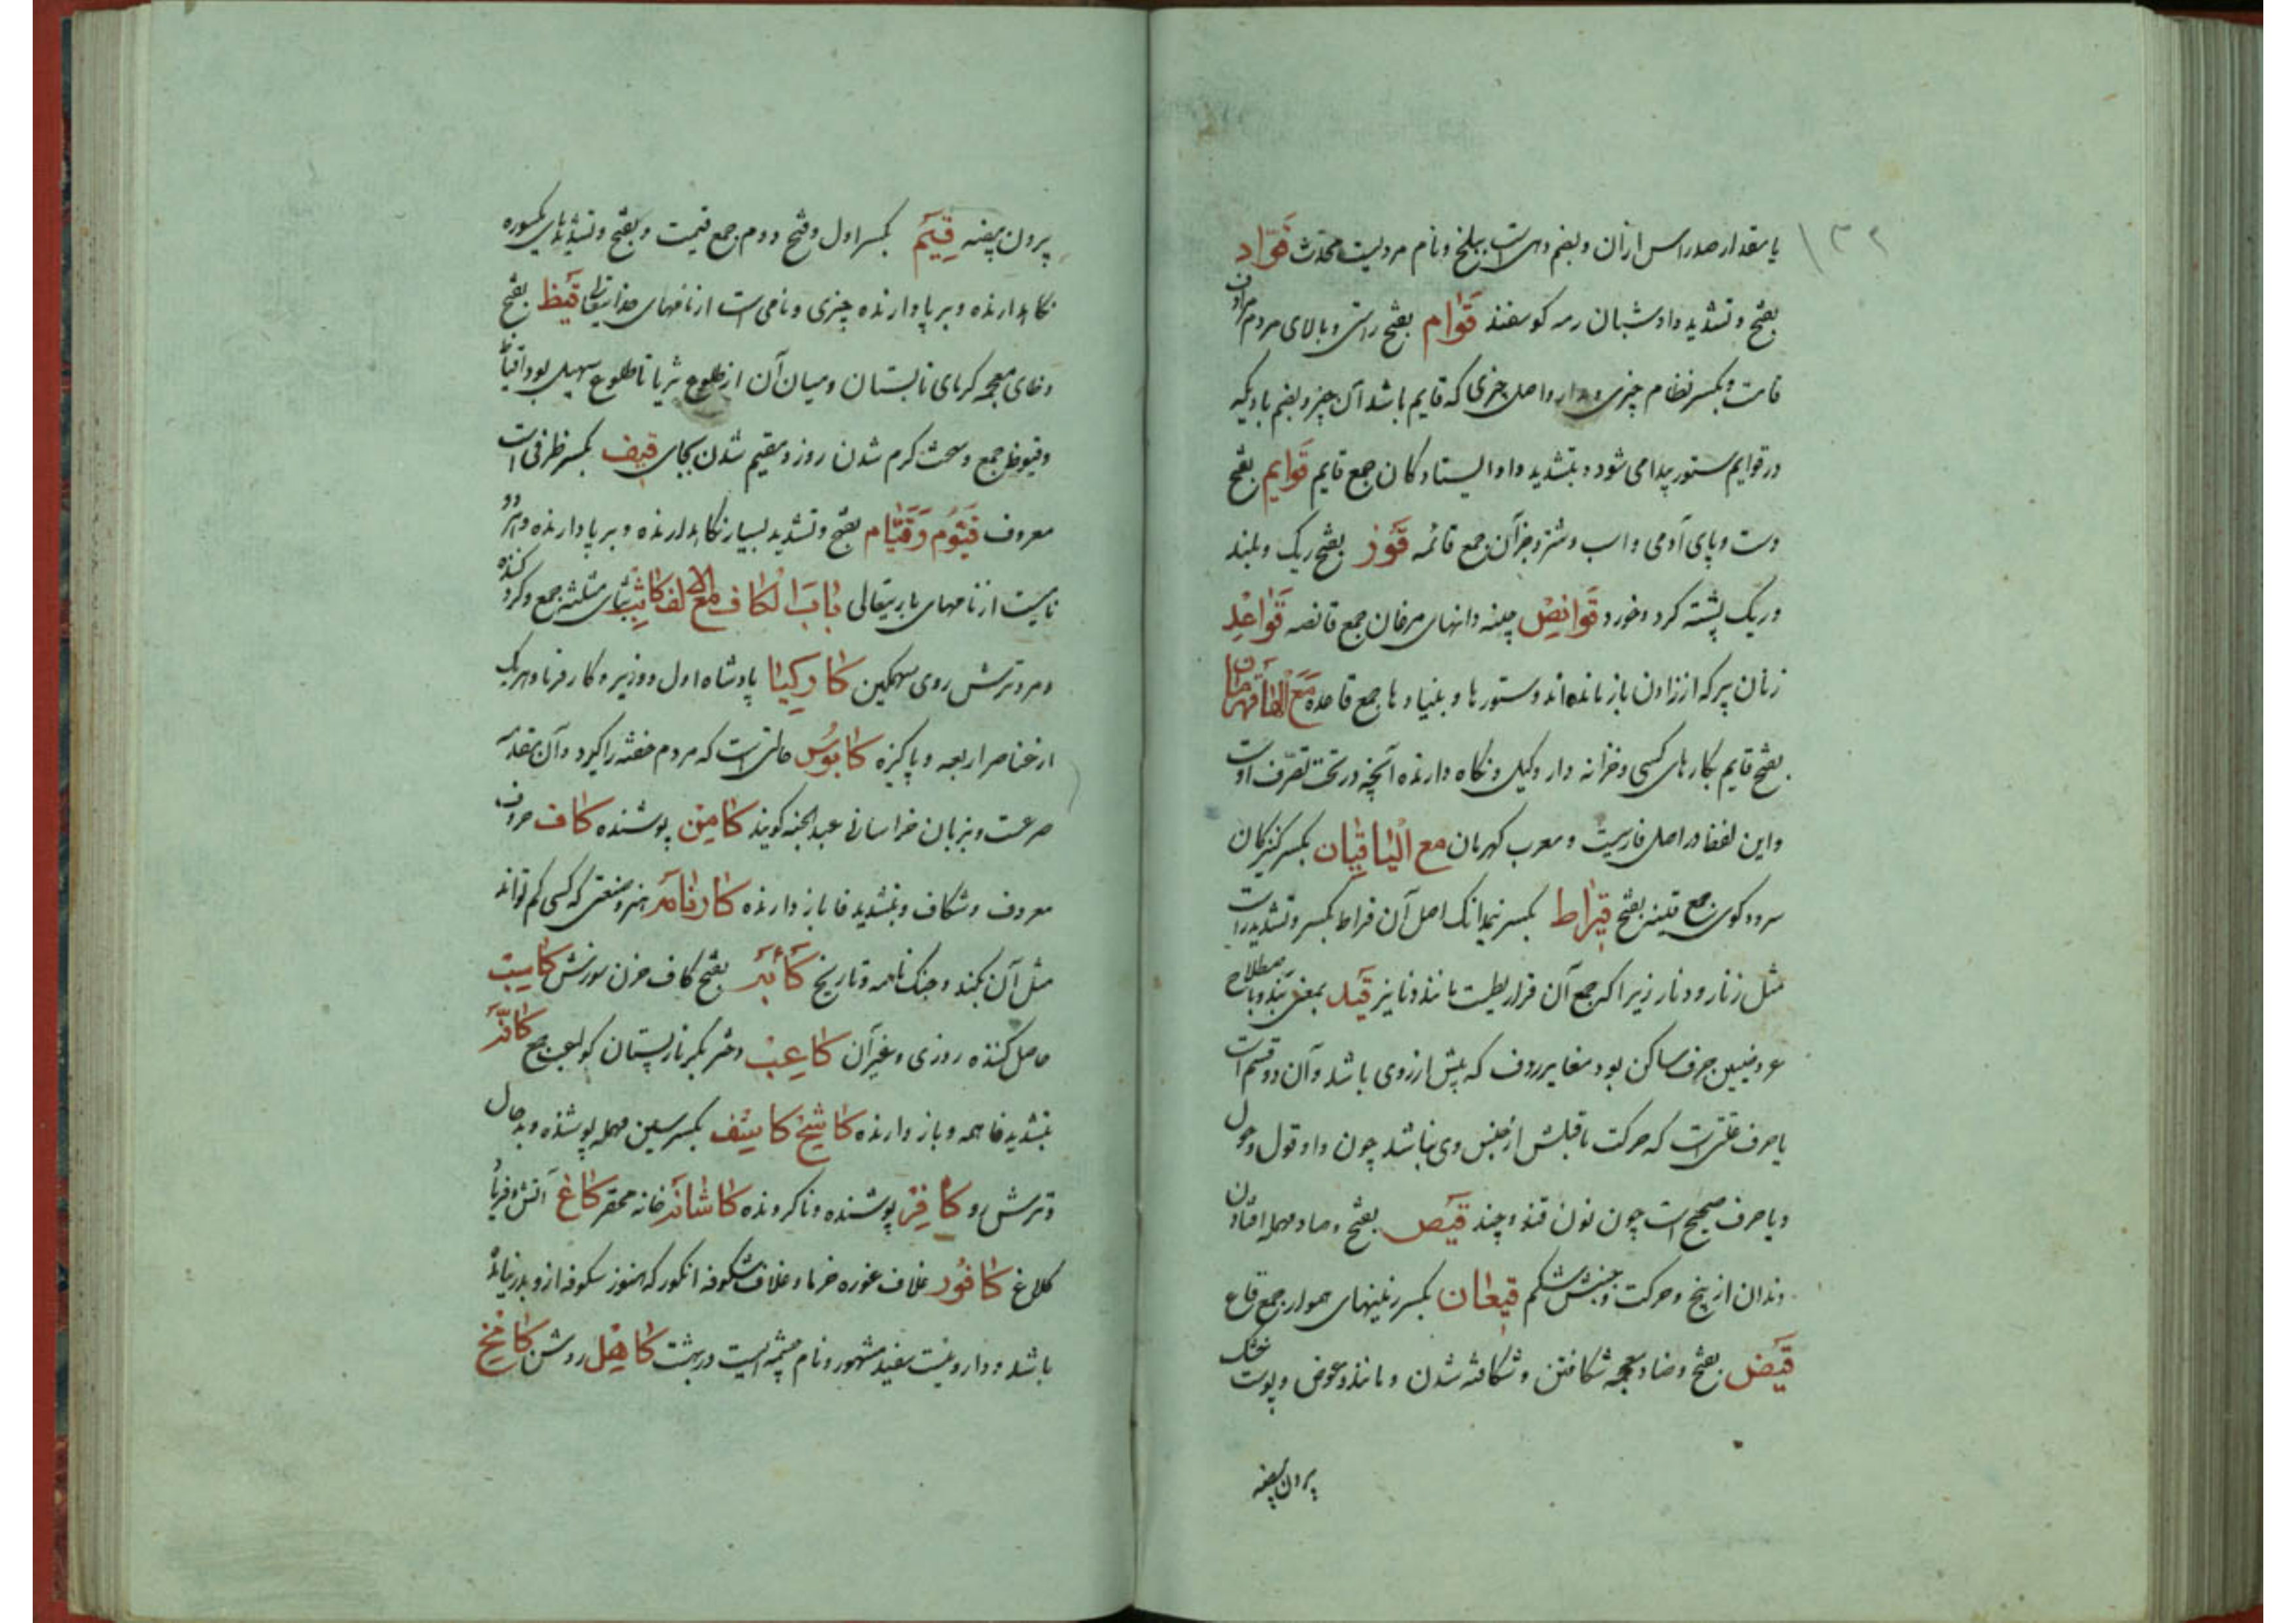 ۱۳۲
یا مقدار صد راس ازان و بضم دهی است ببلخ و نام مردیست محدث قَوّاد
بفتح و تشدید واو شبان رمه کوسفند قَوام بفتح راستی و بالای مردم مراد ازان
قامت و بکسر نظام چیزی و مدار و اصل چیزی که قایم باشد آن چیز و بضم بادیکه
در قوایم ستور پیدا می شود و بتشدید واو ایستادکان جمع قایم قَوایم بفتح
دست و پای آدمی و اسب و شتر و جز آن جمع قائمه قَوز بفتح ریک و بلند
و ریک پشته کرد و خورد قَوانِص چینه دانهای مرغان جمع قانصه قَواعِد
زنان پیر که از زادن باز مانده اند و ستورها و بنیادها جمع قاعده مَعَ الْهَا قَهرمان
بفتح قایم بکارهای کسی و خزانه دار و وکیل و نکاه دارنده آنچه در تحت تصرّف اوست
و این لفظ در اصل فارسیت و معرب کهرمان مع الیا قیان بکسر کنیزکان
سرود کوی جمع قینه بفتح قِیراط بکسر نیمدانک اصل آن قراط بکسر و تشدید راست
مثل زنار و دنار زیرا که جمع آن قراریطست مانند دنانیر قَید بمعنی بند و باصطلاح
عروضیین حرف ساکن بود مغایر ردف که پیش از روی باشد و آن دو قسم است
یا حرف علتی است که حرکت ماقبلش از جنس وی نباشد چون واو قول و حول
و یا حرف صحیح است چون نون قند و چند قَیص بفتح و صاد مهمله افتادن
دندان از بیخ و حرکت و جنبش شکم قیعان بکسر زمینهای هموار جمع قاع
قَیض بفتح و ضاد معجمه شکافتن و شکافته شدن و مانند و عوض و پوست خشک
برون بیضه
برون بیضه قِیَم بکسر اول و فتح دوم جمع قیمت و بفتح و تشدید یای مکسوره
نکاهدارنده و برپا دارنده چیزی و نامی است از نامهای خدایتعالی قَیظ بفتح
و ظای معجمه کرمای تابستان و میان آن از طلوع ثریا تا طلوع سهیل بود اقیاظ
و قیوظ جمع و سخت کرم شدن روز و مقیم شدن بجای قیف بکسر ظرفی است
معروف قَیّوم وَ قَیّام بفتح و تشدید بسیار نکاهدارنده و برپا دارنده و هر دو
نامیست از نامهای باریتعالی بابَ الکاف مع الالف کاثِب بثای مثلثه جمع و کرد کننده
و مرد ترش روی سهمکین کارکیا پادشاه اول و وزیر و کار فرما و هر یک
از عناصر اربعه و پاکیزه کابوس حالتی است که مردم خفته را کیرد و آن مقدمه
صرعست و بزبان خراسانی عبدالجنه کویند کامِن پوشنده کاف حروف
معروف و شکاف و بتشدید فا باز دارنده کارنامَه هنر و صنعتی که کسی کم تواند
مثل آن بکند و جنک نامه و تاریخ کَأبَه بفتح کاف حزن سوزنش کاسِب
حاصل کننده روزی و غیر آن کاعِب دختر بکر نارپستان کواعب جمع کافَّه
بتشدید فا همه و باز دارنده کاشِح کاسِف بکسر سین مهمله پوشنده و بد حال
و ترش رو کافِر پوشنده و ناکرونده کاشانَه خانه محقر کاغ آتش و فریاد
کلاغ کافُور غلاف غوره خرما و غلاف شکوفه انکور که هنوز شکوفه ازو بدر نیامده
باشد و دارویست سفید مشهور و نام چشمه ایست در بهشت کاهِل روشن کامخ